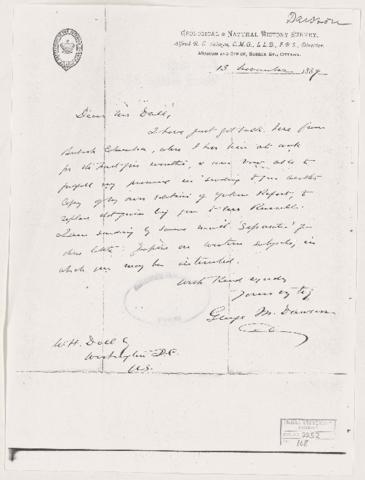 Dawson
GEOLOGICAL & NATURAL HISTORY SURVEY.
Alfred R. C. Selwyn, C.M.G., L.L.D., F.R.S., Director.
MUSEUM AND OFFICE, SUSSEX ST., OTTAWA.
13 November 1889
Dear Mr Dall,
I have just got back here from
British Columbia, where I have been at work
for the past few months, & am now able to
fulfil my promise in sending to you another
copy of my own edition of Yukon Report, to
replace that given by you to Mr Russell.
I am sending by same mail 'Separates' of
papers on western subjects, in
which you may be interested.
With kind regards
Yours very truly
George M. Dawson
W.H. Dall Esq
Washington D.C.
U.S.
2252
168